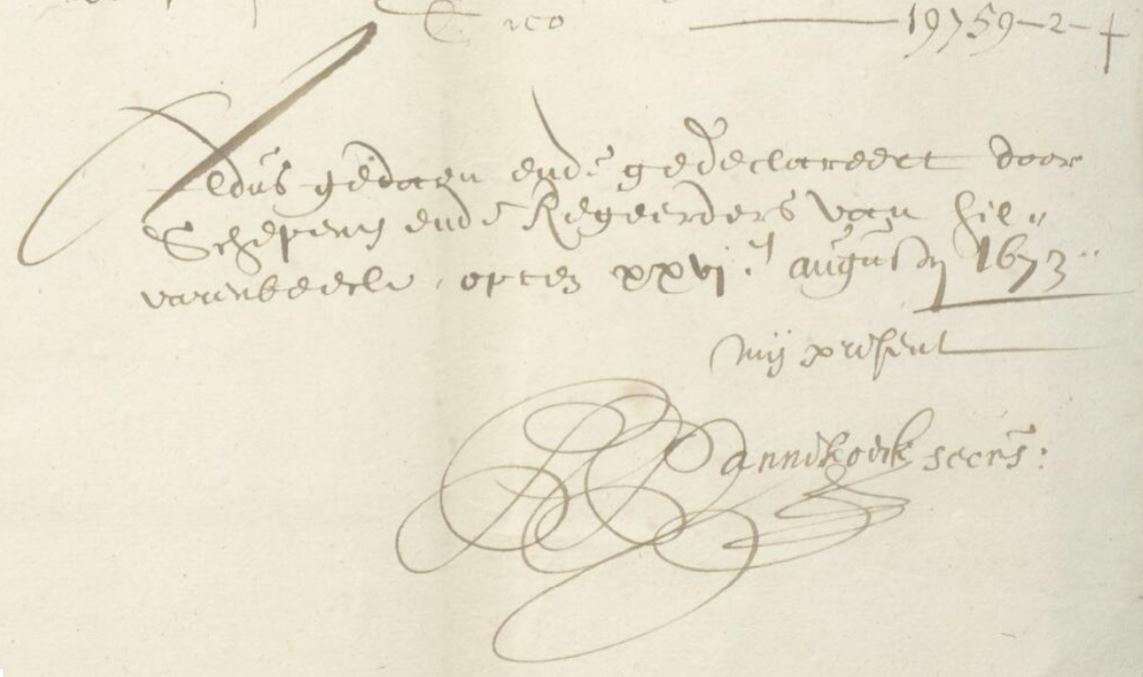 19759-2-
Aldus gedaen ende gedeclareert door
Schepenen ende Regeerders van hil„
varenbeecke, opten xxvj.en augustij 1673
mij present
Pannekoeck secrs: